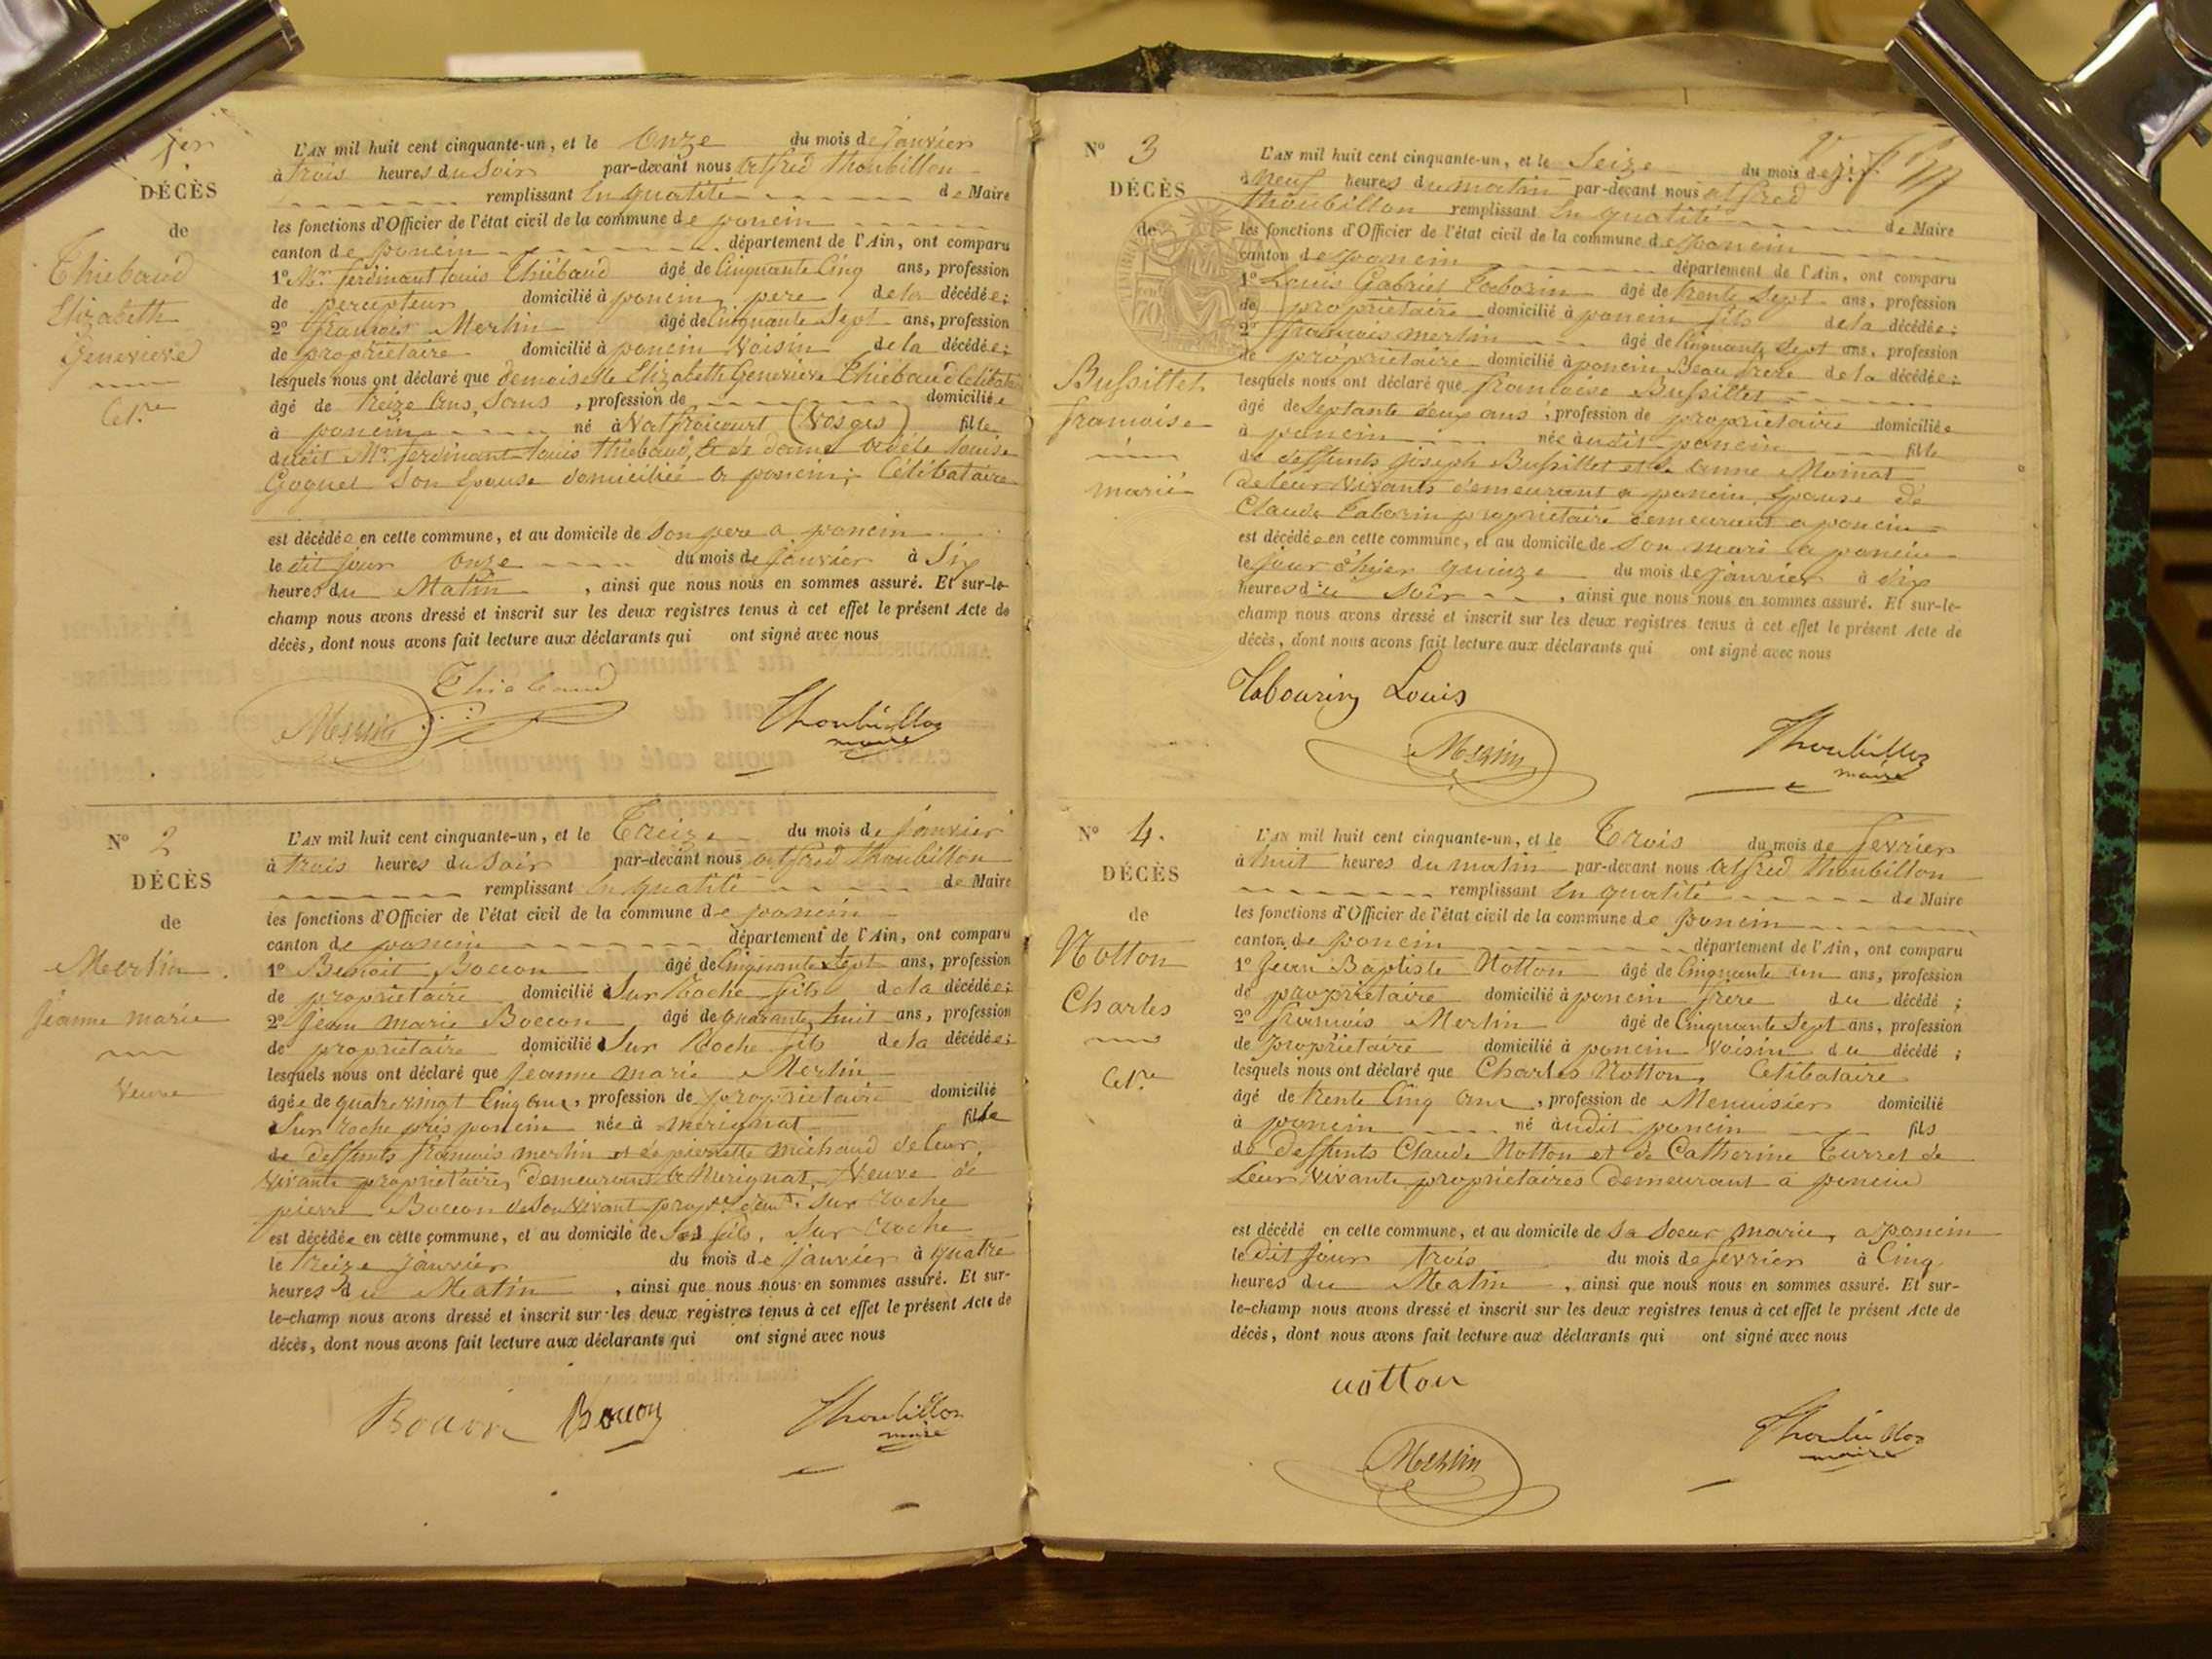 1er
DÉCÈS
de
Thiebaud
Elizabeth
Genevieve
Cel.re
L'AN mil huit cent cinquante-un, et le Onze du mois de janvier
à trois heures du Soir par-devant nous alfred thoubillon
remplissant En qualité de Maire
les fonctions d'Officier de l'état civil de la commune de poncin
canton de poncin département de l'Ain, ont comparu
1º Mr. ferdinant louis Thiébaud âgé de Cinquante Cinq ans, profession
de percepteur domicilié à poncin, pere de la décédée;
2º françois Merlin âgé de Cinquante Sept ans, profession
de propriétaire domicilié à poncin Voisin de la décédée;
lesquels nous ont déclaré que demoiselle Elizabeth Genevieve Thiebaud
âgé de treize ans, Sans, profession de domiciliée
à poncin né à (Vosges) fille
dudit Mr. ferdinant louis thiebaud, Et de dame adèle louise
Goguel Son Epouse domiciliée a poncin; Célibataire
est décédée en cette commune, et au domicile de Son pere a poncin
le dit jour onze du mois de janvier à Six
heures du Matin, ainsi que nous nous en sommes assuré. Et sur-le-
champ nous avons dressé et inscrit sur les deux registres tenus à cet effet le présent Acte de
décès, dont nous avons fait lecture aux déclarants qui ont signé avec nous
Thiebaud
Merlin Thoubillon
maire
Nº 2
DÉCÈS
de
Merlin
jeanne marie
Veuve
L'AN mil huit cent cinquante-un, et le Treize du mois de janvier
à trois heures du Soir par-devant nous alfred thoubillon
remplissant En qualité de Maire
les fonctions d'Officier de l'état civil de la commune de poncin
canton de poncin département de l'Ain, ont comparu
1º Benoit Boccon âgé de Cinquante Sept ans, profession
de propriétaire domicilié Sur Roche fils de la décédée;
2º jean marie Boccon âgé de quarante huit ans, profession
de propriétaire domicilié Sur Roche fils de la décédée;
lesquels nous ont déclaré que jeanne marie Merlin
âgée de quatrevingt Cinq ans, profession de propriétaire domicilié
Sur roche près poncin née à merignat fille
de deffunts françois merlin et de pierrette michaud de leur
Vivants propriétaires, demeurant à Merignat, Veuve de
pierre Boccon de Son Vivant Sur roche
est décédée en cette commune, et au domicile de Ses fils, Sur roche
le treize janvier du mois de janvier à quatre
heures du Matin, ainsi que nous nous en sommes assuré. Et sur-
le-champ nous avons dressé et inscrit sur les deux registres tenus à cet effet le présent Acte de
décès, dont nous avons fait lecture aux déclarants qui ont signé avec nous
Bocon Bocon Thoubillon
maire
Nº 3
DÉCÈS
de
Bussillet
francoise
marié
L'AN mil huit cent cinquante-un, et le Seize du mois de
à neuf heures du matin par-devant nous alfred
thoubillon remplissant En qualité de Maire
les fonctions d'Officier de l'état civil de la commune de poncin
canton de poncin département de l'Ain, ont comparu
1º Louis Gabriel Taborin âgé de trente Sept ans, profession
de propriétaire domicilié à poncin fils de la décédée;
2º françois merlin âgé de Cinquante Sept ans, profession
de propriétaire domicilié à poncin Beau frere de la décédée;
lesquels nous ont déclaré que françoise Bussillet
âgé de Septante deux ans, profession de propriétaire domiciliée
à poncin née audit poncin fille
de deffunts joseph Bussillet et de anne Moinat
de leur Vivants demeurant a poncin, Epouse de
Claude taborin propriétaire demeurant a poncin
est décédée en cette commune, et au domicile de Son mari a poncin
le jour d'hier quinze du mois de janvier à dix
heures du Soir, ainsi que nous nous en sommes assuré. Et sur-le-
champ nous avons dressé et inscrit sur les deux registres tenus à cet effet le présent Acte de
décès, dont nous avons fait lecture aux déclarants qui ont signé avec nous
Tabouriny Louis
Merlin Thoubillon
maire
Nº 4.
DÉCÈS
de
Notton
Charles
Cel.re
L'AN mil huit cent cinquante-un, et le Trois du mois de fevrier
à huit heures du matin par-devant nous alfred thoubillon
remplissant En qualité de Maire
les fonctions d'Officier de l'état civil de la commune de poncin
canton de poncin département de l'Ain, ont comparu
1º Jean Baptiste Notton âgé de Cinquante un ans, profession
de propriétaire domicilié à poncin frere du décédé;
2º francois Merlin âgé de Cinquante Sept ans, profession
de propriétaire domicilié à poncin Voisin du décédé;
lesquels nous ont déclaré que Charles Notton, Celibataire
âgé de trente Cinq ans, profession de Menuisier domicilié
à poncin né audit poncin fils
de deffunts Claude Notton et de Catherine Turrel de
Leur Vivants propriétaires demeurant a poncin
est décédé en cette commune, et au domicile de Sa Soeur marie, a poncin
le dit jour trois du mois de fevrier à Cinq
heures du Matin, ainsi que nous nous en sommes assuré. Et sur-
le-champ nous avons dressé et inscrit sur les deux registres tenus à cet effet le présent Acte de
décès, dont nous avons fait lecture aux déclarants qui ont signé avec nous
notton
Merlin Thoubillon
maire